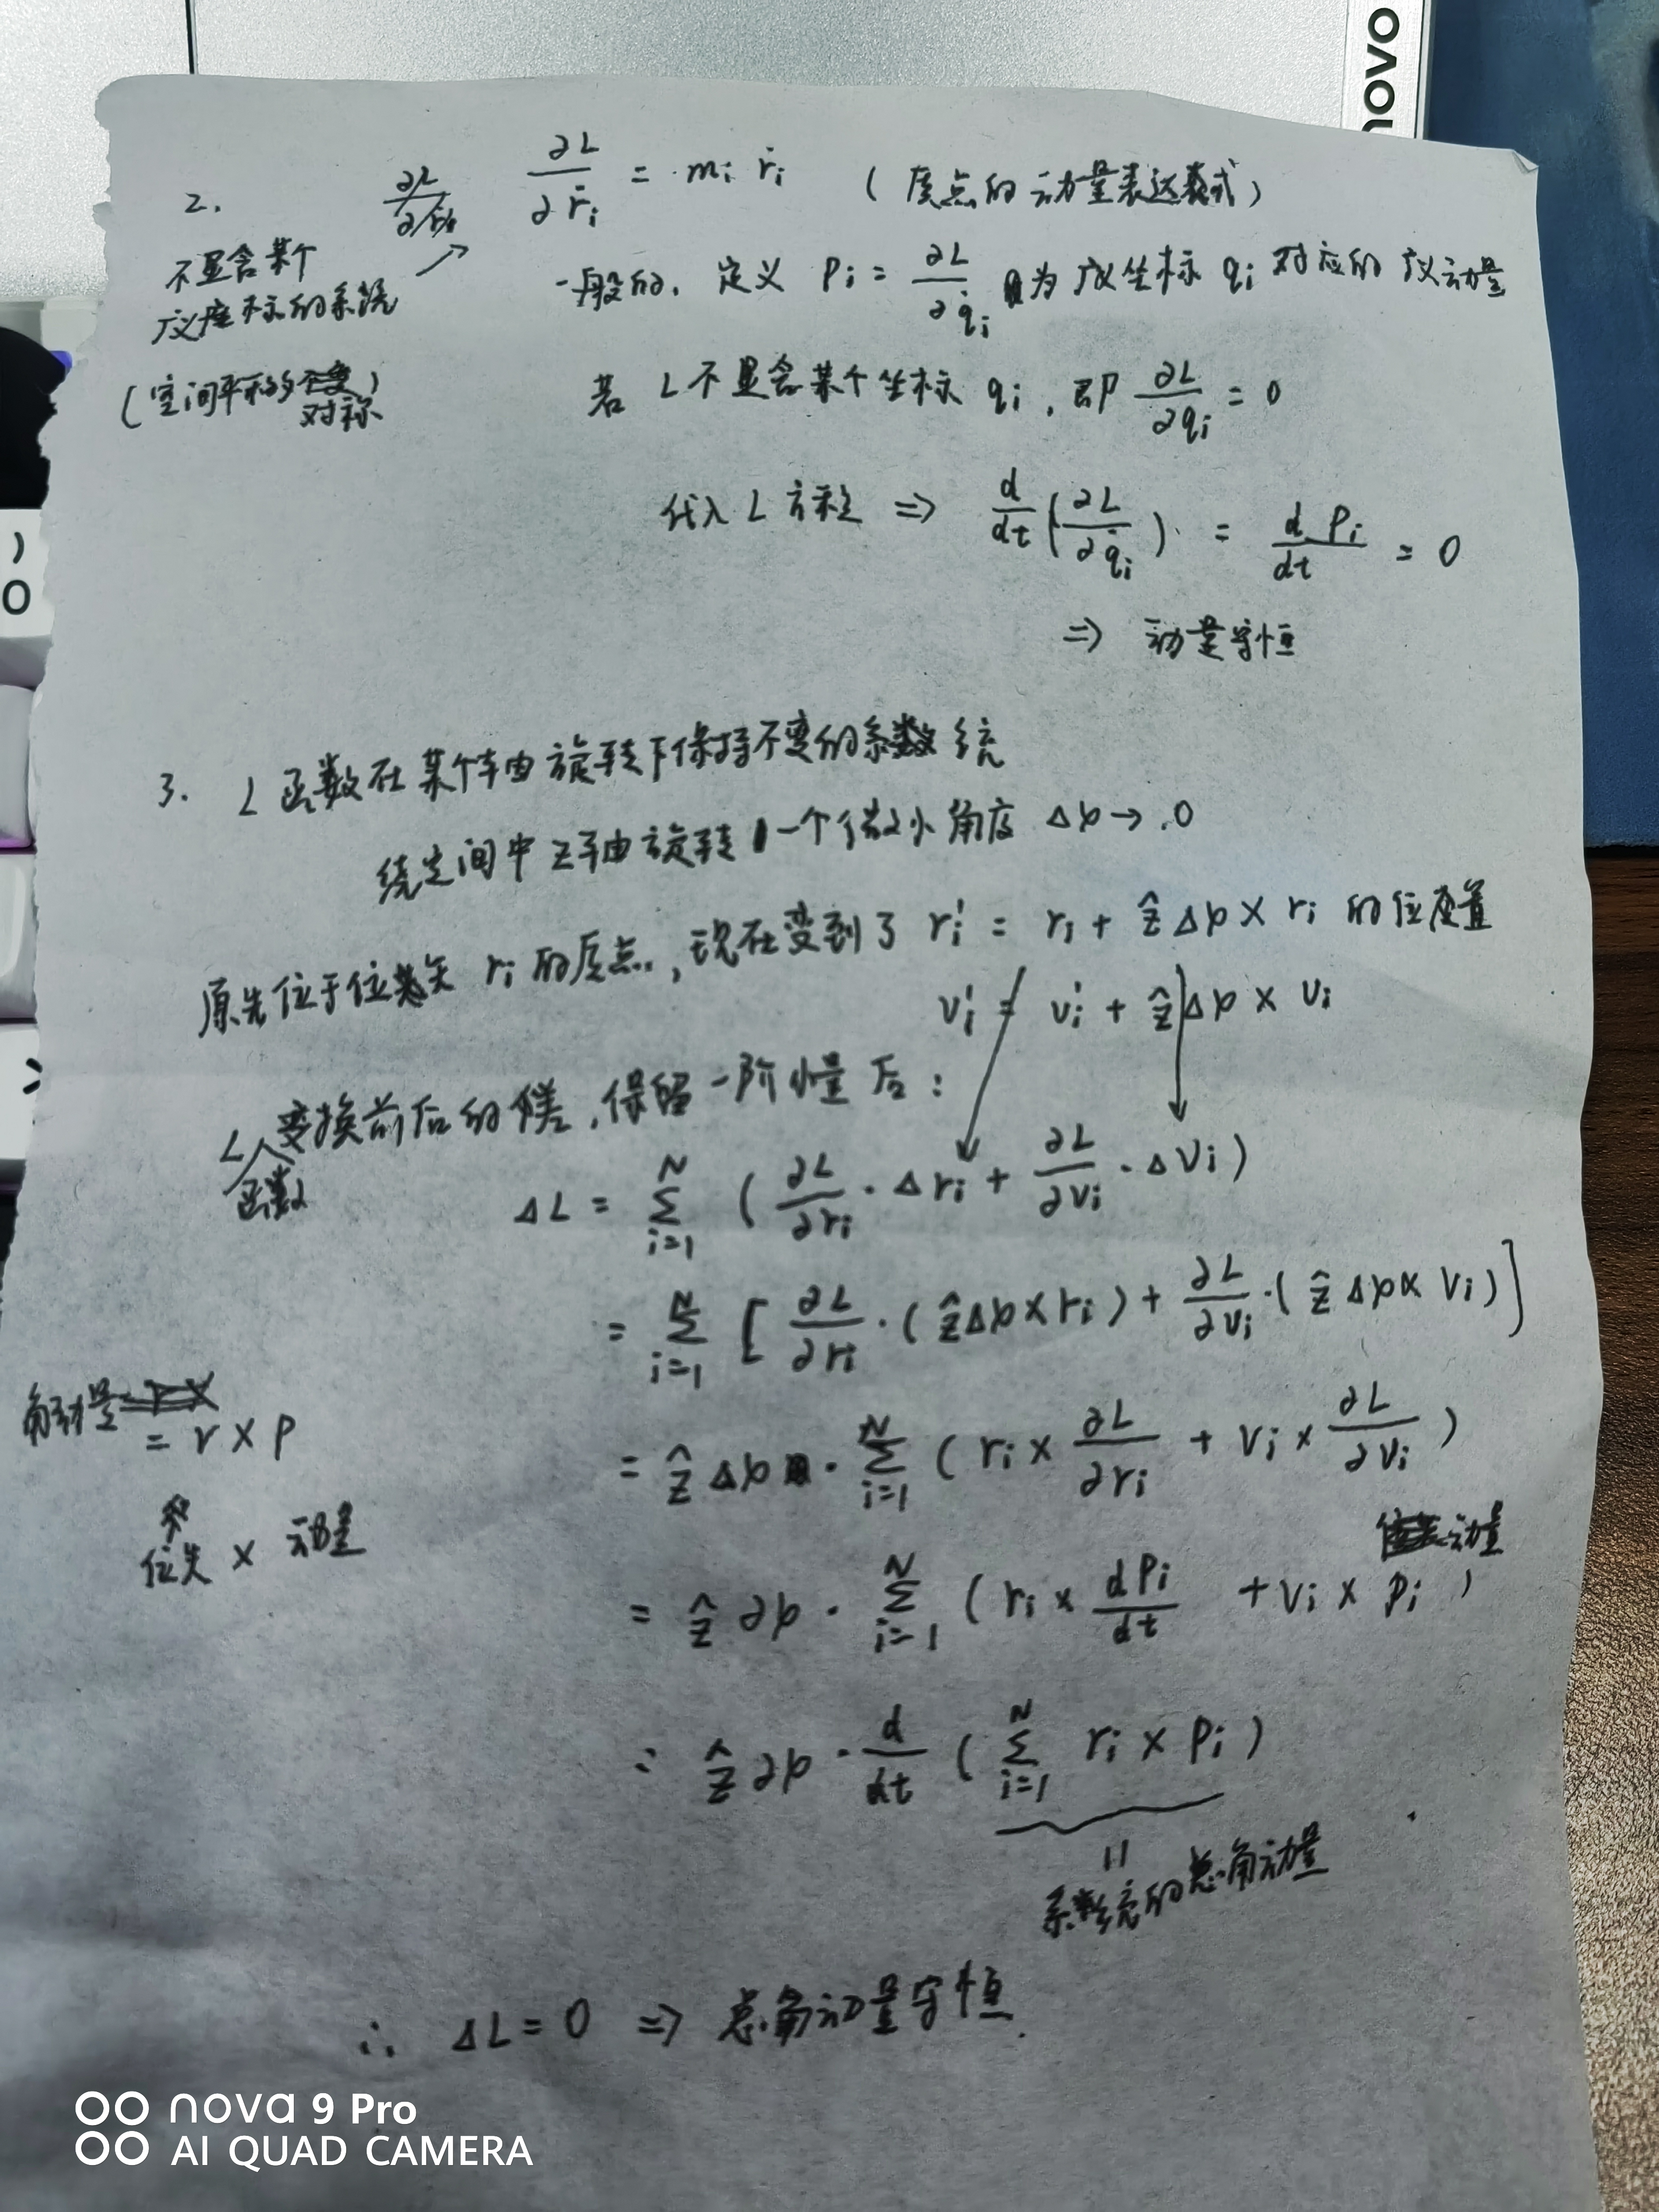 novo
)
O
2. ∂L/∂ṙᵢ = mᵢ ṙᵢ (质点的动量表达式)
不显含某个
广义座标的系统
(空间平移对称)
一般的, 定义 pᵢ = ∂L/∂q̇ᵢ 为广义坐标 qᵢ 对应的广义动量
若 L 不显含某个坐标 qᵢ, 即 ∂L/∂qᵢ = 0
代入 L 方程 ⇒ d/dt(∂L/∂q̇ᵢ) = d pᵢ/dt = 0
⇒ 动量守恒
3. L 函数在某个轴由旋转下保持不变的系统
绕空间中 z 轴旋转一个微小角度 Δϕ → 0
原先位于位矢 rᵢ 的质点, 现在变到了 rᵢ' = rᵢ + ẑΔϕ × rᵢ 的位置
vᵢ' = vᵢ' + ẑΔϕ × vᵢ
L函数变换前后的差, 保留一阶小量后:
ΔL = Σᵢ₌₁ᴺ (∂L/∂rᵢ · Δrᵢ + ∂L/∂vᵢ · Δvᵢ)
= Σᵢ₌₁ᴺ [∂L/∂rᵢ · (ẑΔϕ × rᵢ) + ∂L/∂vᵢ · (ẑΔϕ × vᵢ)]
角动量
= r × p
位矢 × 动量
= ẑΔϕ · Σᵢ₌₁ᴺ (rᵢ × ∂L/∂rᵢ + vᵢ × ∂L/∂vᵢ)
动量
= ẑ∂ϕ · Σᵢ₌₁ᴺ (rᵢ × dpᵢ/dt + vᵢ × pᵢ)
= ẑ∂ϕ · d/dt (Σᵢ₌₁ᴺ rᵢ × pᵢ)
系统的总角动量
∴ ΔL = 0 ⇒ 总角动量守恒.
nova 9 Pro
AI QUAD CAMERA